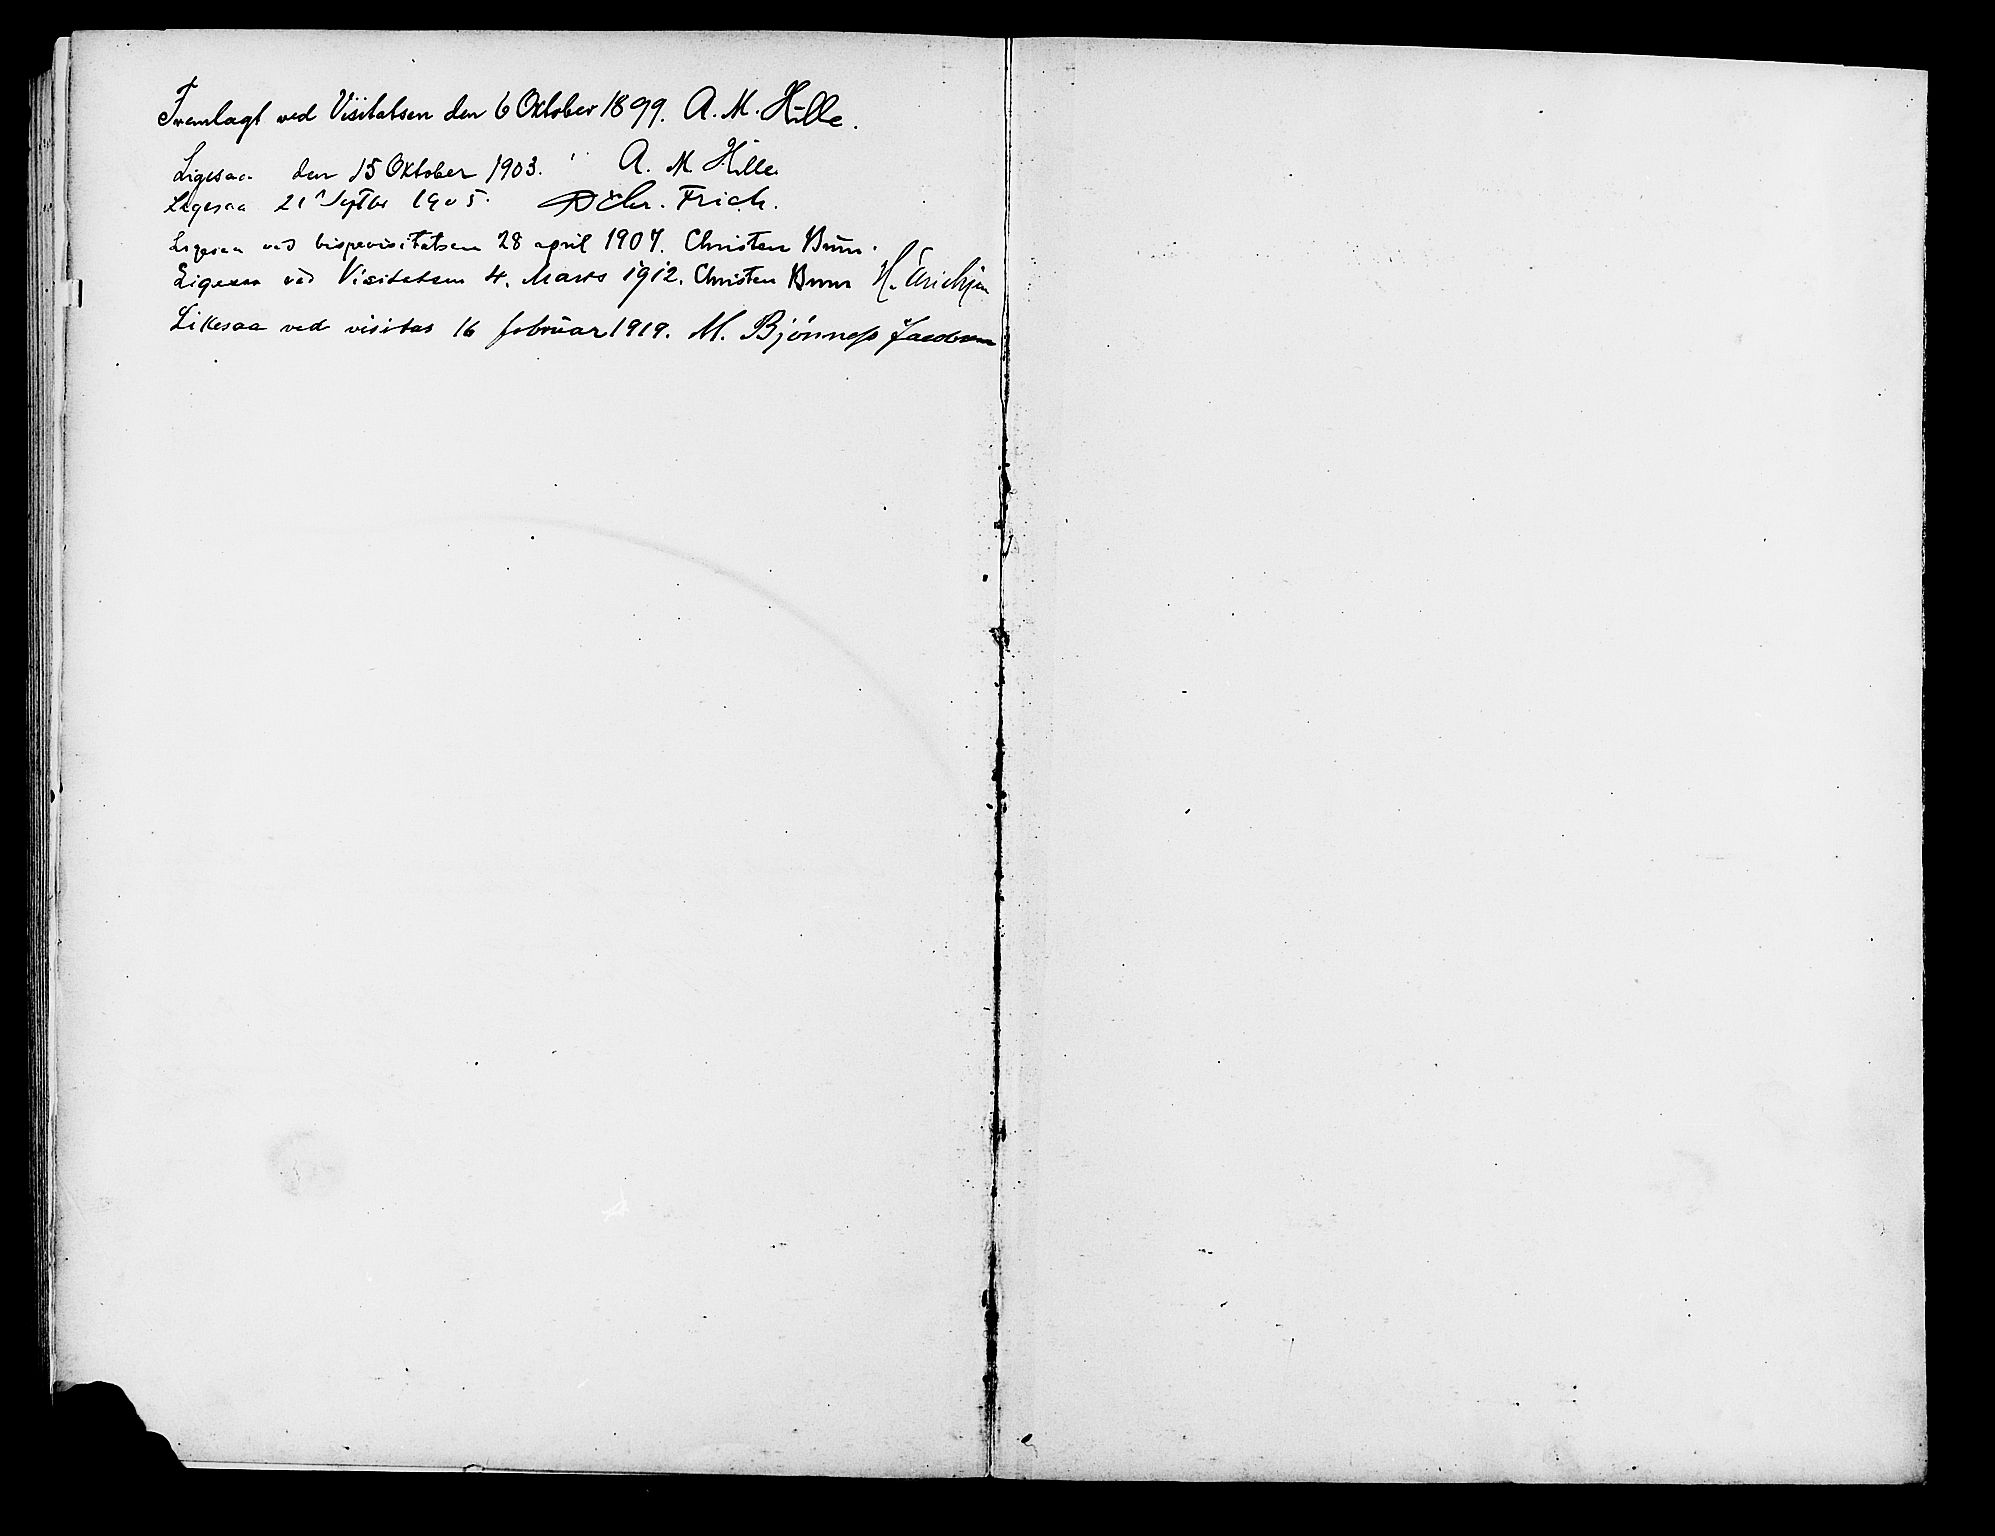 Fremlagt ved Visitatsen den 6 Oktober 1899. A. M. Hille.
Ligesaa den 15 Oktober 1903. A. M Hille
Ligesaa 21 Septbr 1905. Chr. Frich.
Ligesaa ved bispevisitatsen 28 april 1907. Christen Brun.
Ligesaa ved Visitatsen 4. Marts 1912. Christen Brun H.
Likesaa ved visitas 16 februar 1919. M. Bjönness Jacobsen